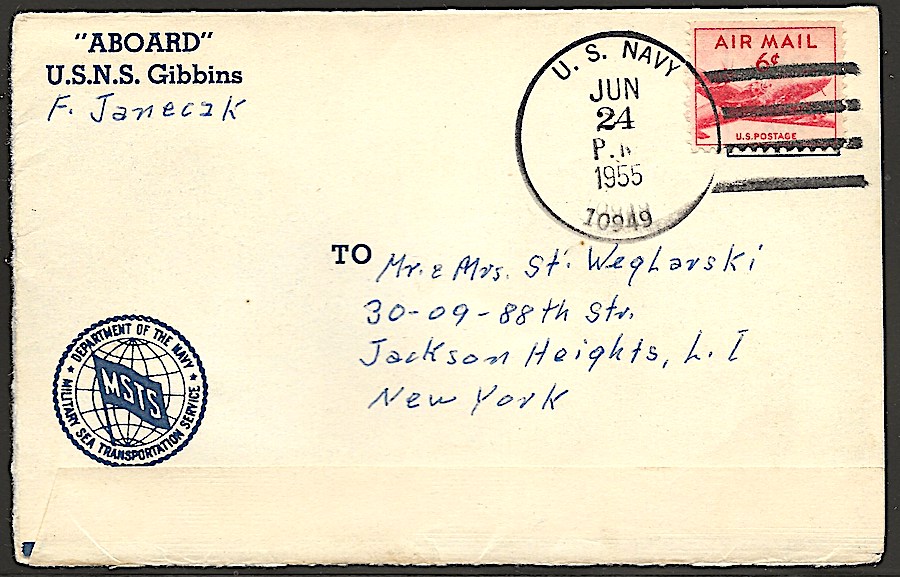 "ABOARD"
U.S.N.S. Gibbins
F. Janeczk
U. S. NAVY
JUN
24
P.M
1955
10949
AIR MAIL
6¢
U.S. POSTAGE
TO Mr. & Mrs. St. Weglarski
30-09-88th Str.
Jackson Heights, L. I
New York
★ DEPARTMENT OF THE NAVY ★
MILITARY SEA TRANSPORTATION SERVICE
MSTS